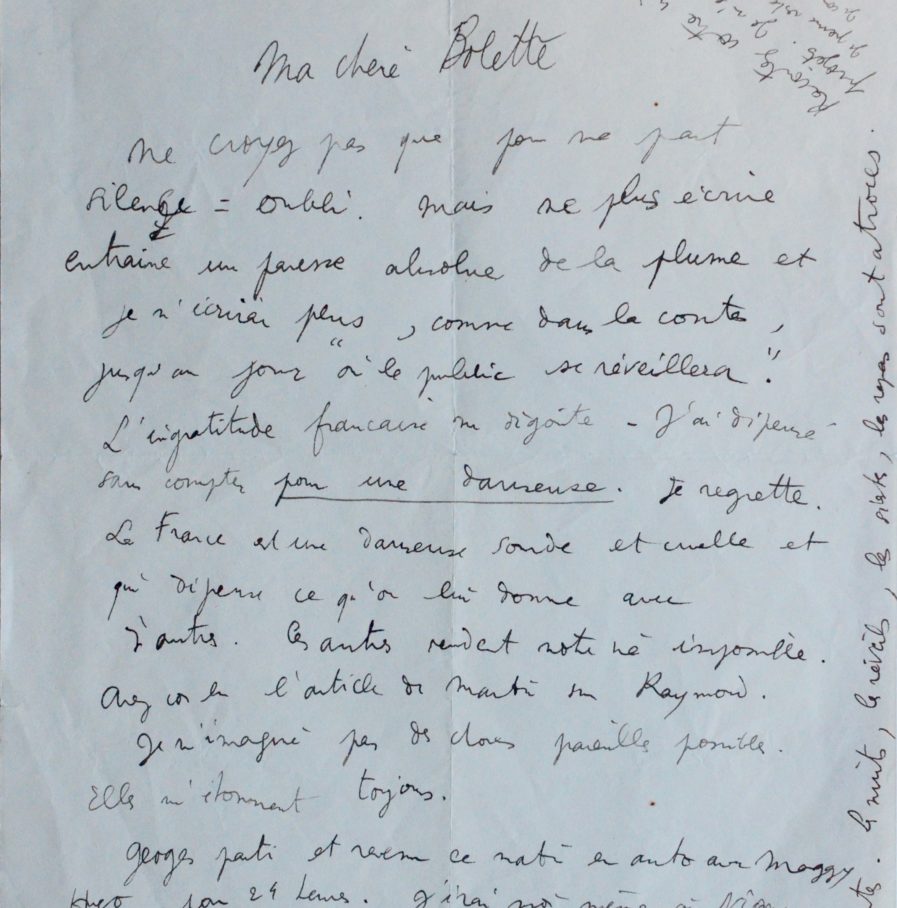 Ma chère Bolette
Ne croyez pas que pour ma part
silence = oubli. Mais ne plus écrire
entraine un paresse absolue de la plume et
je n'écrirai plus, comme dans la conte,
jusqu'au jour "où le public se réveillera".
L'ingratitude francaise me dégoûte – J'ai dépensé
sans compter pour une danseuse. Je regrette.
La France est une danseuse sourde et cruelle et
qui dépense ce qu'on lui donne avec
d'autres. Ces autres rendent notre vie impossible.
Avez vous lu l'article de sur Raymond.
Je n'imagine pas des choses pareilles possible.
Elles m'étonnent toujours.
Georges parti et revenu ce matin en auto avec Maggy
Hugo pour 24 heures. J'irai moi même à
Racontez votre
projet. Je
la nuit, les réveils, les sieste, les repas sont atroces.